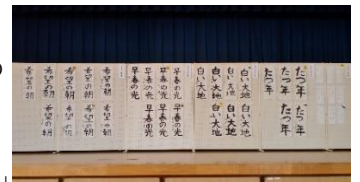 たつ年
たつ年
たつ年
たつ年
たつ年
白い大地
白い大地
白い大地
白い大地
白い大地
白い大地
白い大地
早春の光
早春の光
早春の光
早春の光
早春の光
早春の光
早春の光
希望の朝
希望の朝
希望の朝
希望の朝
希望の朝
希望の朝
希望の朝
希望の朝
希望の朝